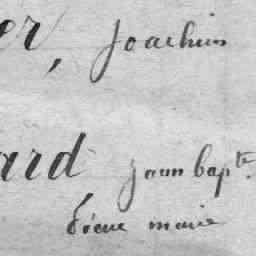 er, Joachim
ard Jean bapte.
marie